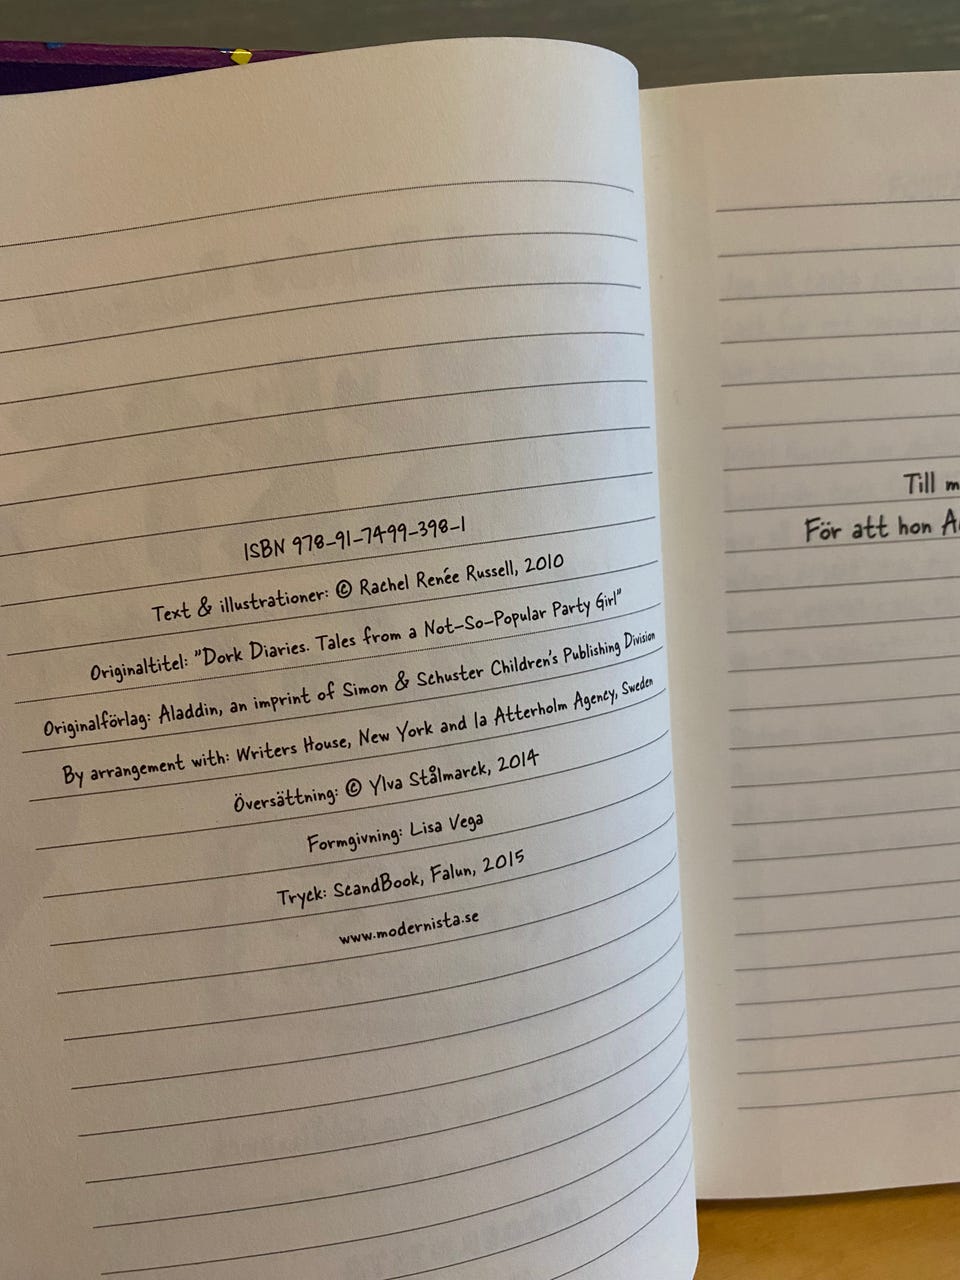 ISBN 978-91-7499-398-1
Text & illustrationer: © Rachel Renée Russell, 2010
Originaltitel: "Dork Diaries. Tales from a Not-So-Popular Party Girl"
Originalförlag: Aladdin, an imprint of Simon & Schuster Children's Publishing Division
By arrangement with: Writers House, New York and Ia Atterholm Agency, Sweden
Översättning: © Ylva Stålmarck, 2014
Formgivning: Lisa Vega
Tryck: ScandBook, Falun, 2015
www.modernista.se
Till
För att hon